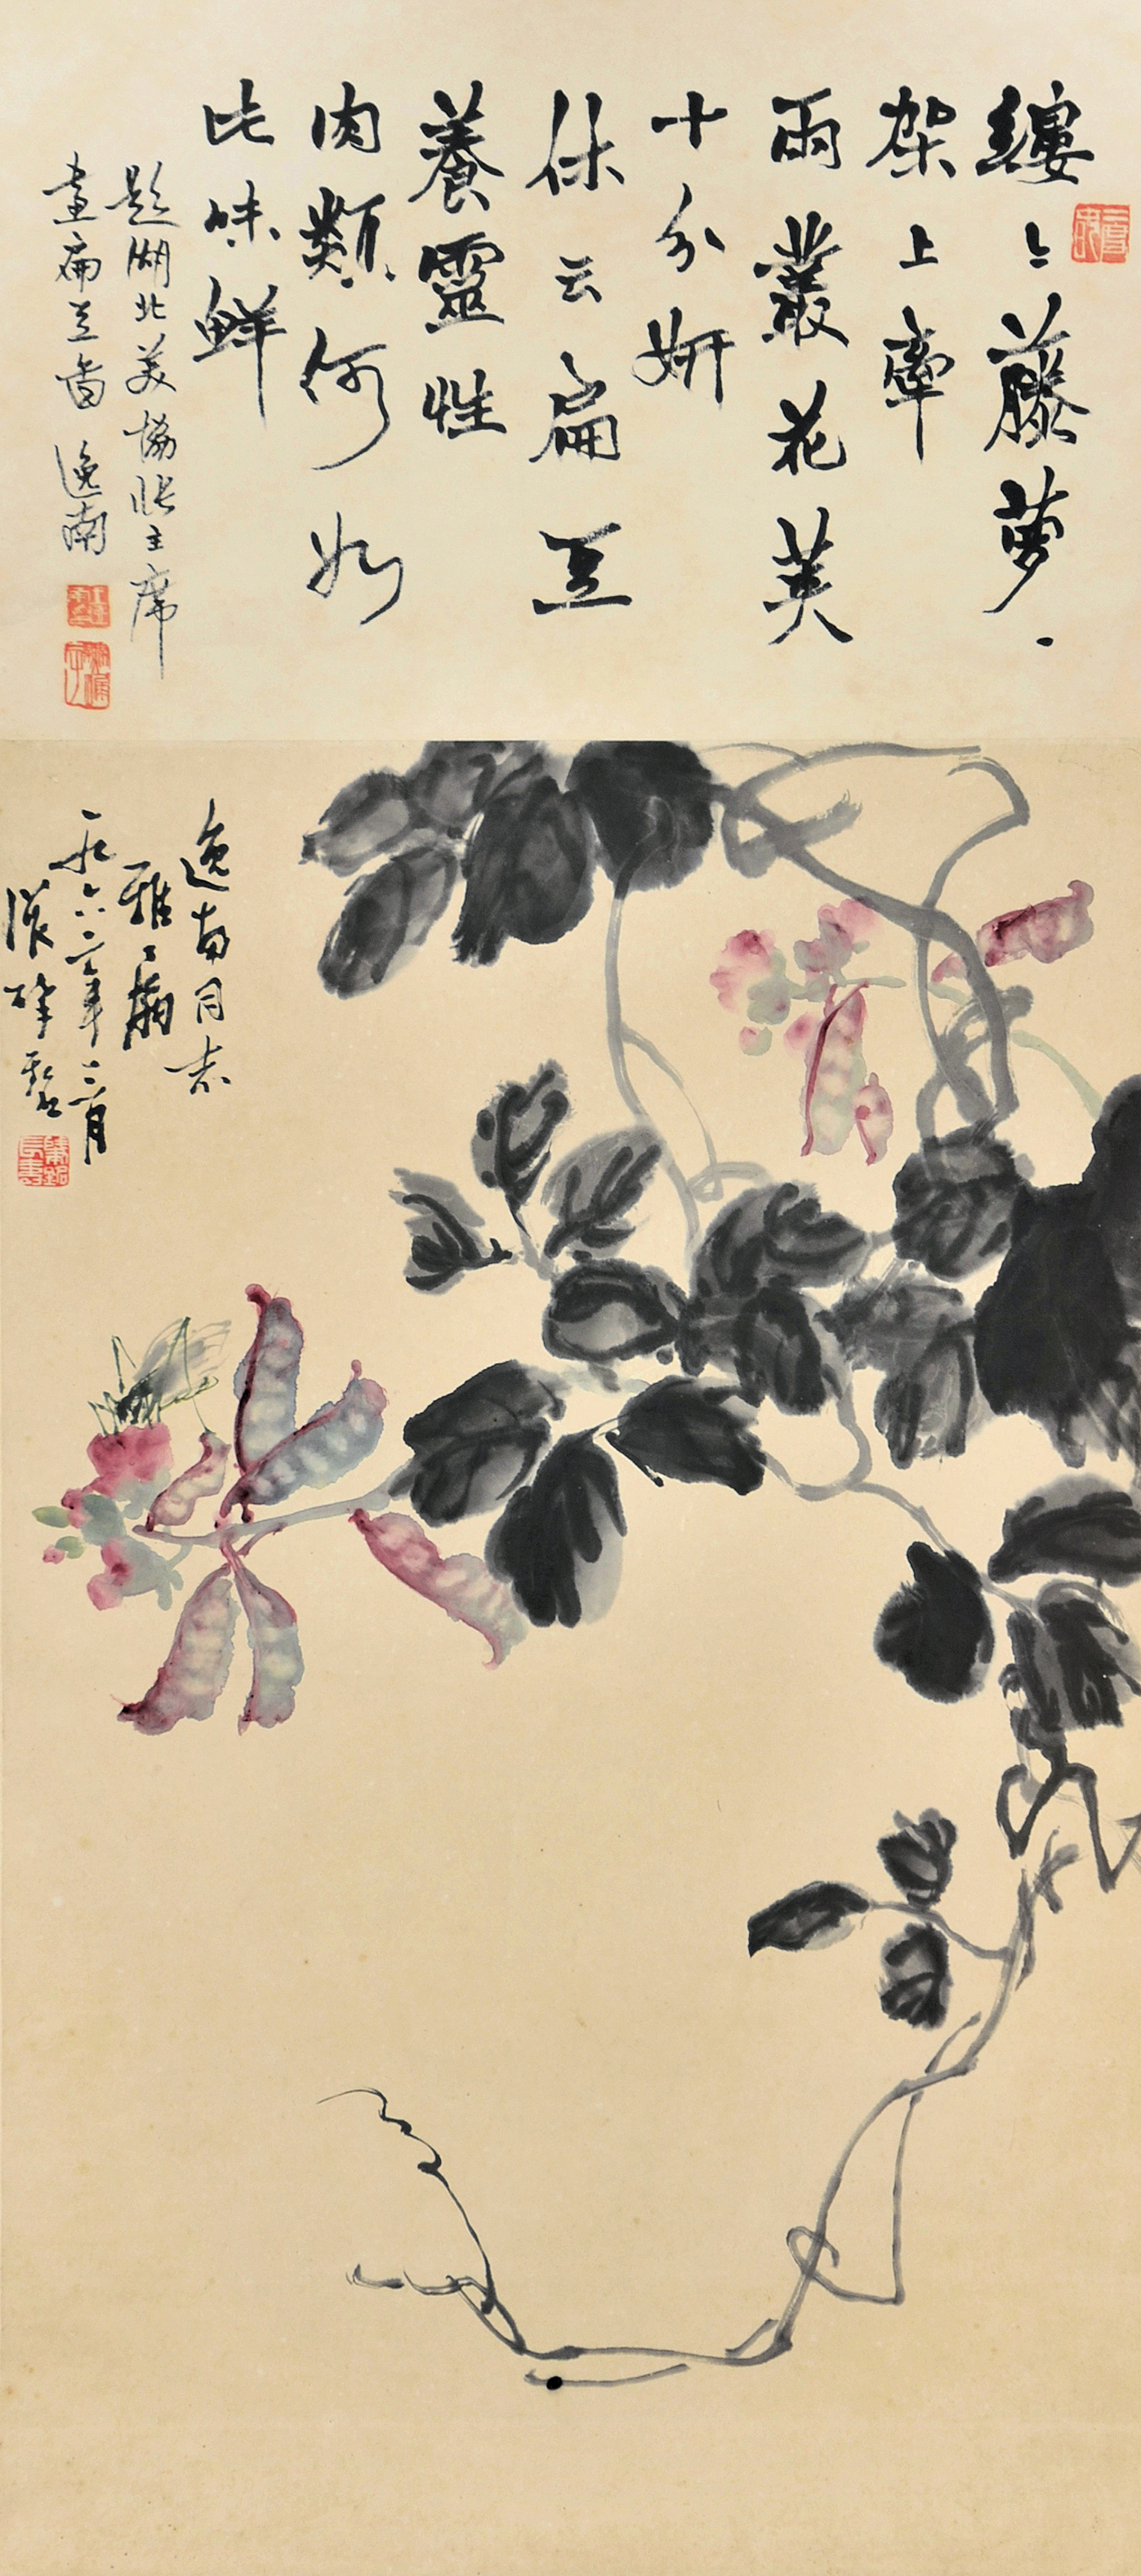 縷〻藤萝
架上牽
雨叢花荚
十分妍
休云扁豆
養靈性
肉類何如
此味鮮
題湖北美協張主席
畫扁豆啚 逸南
逸南同志
雅屬
一九六二年三月
張肇銘